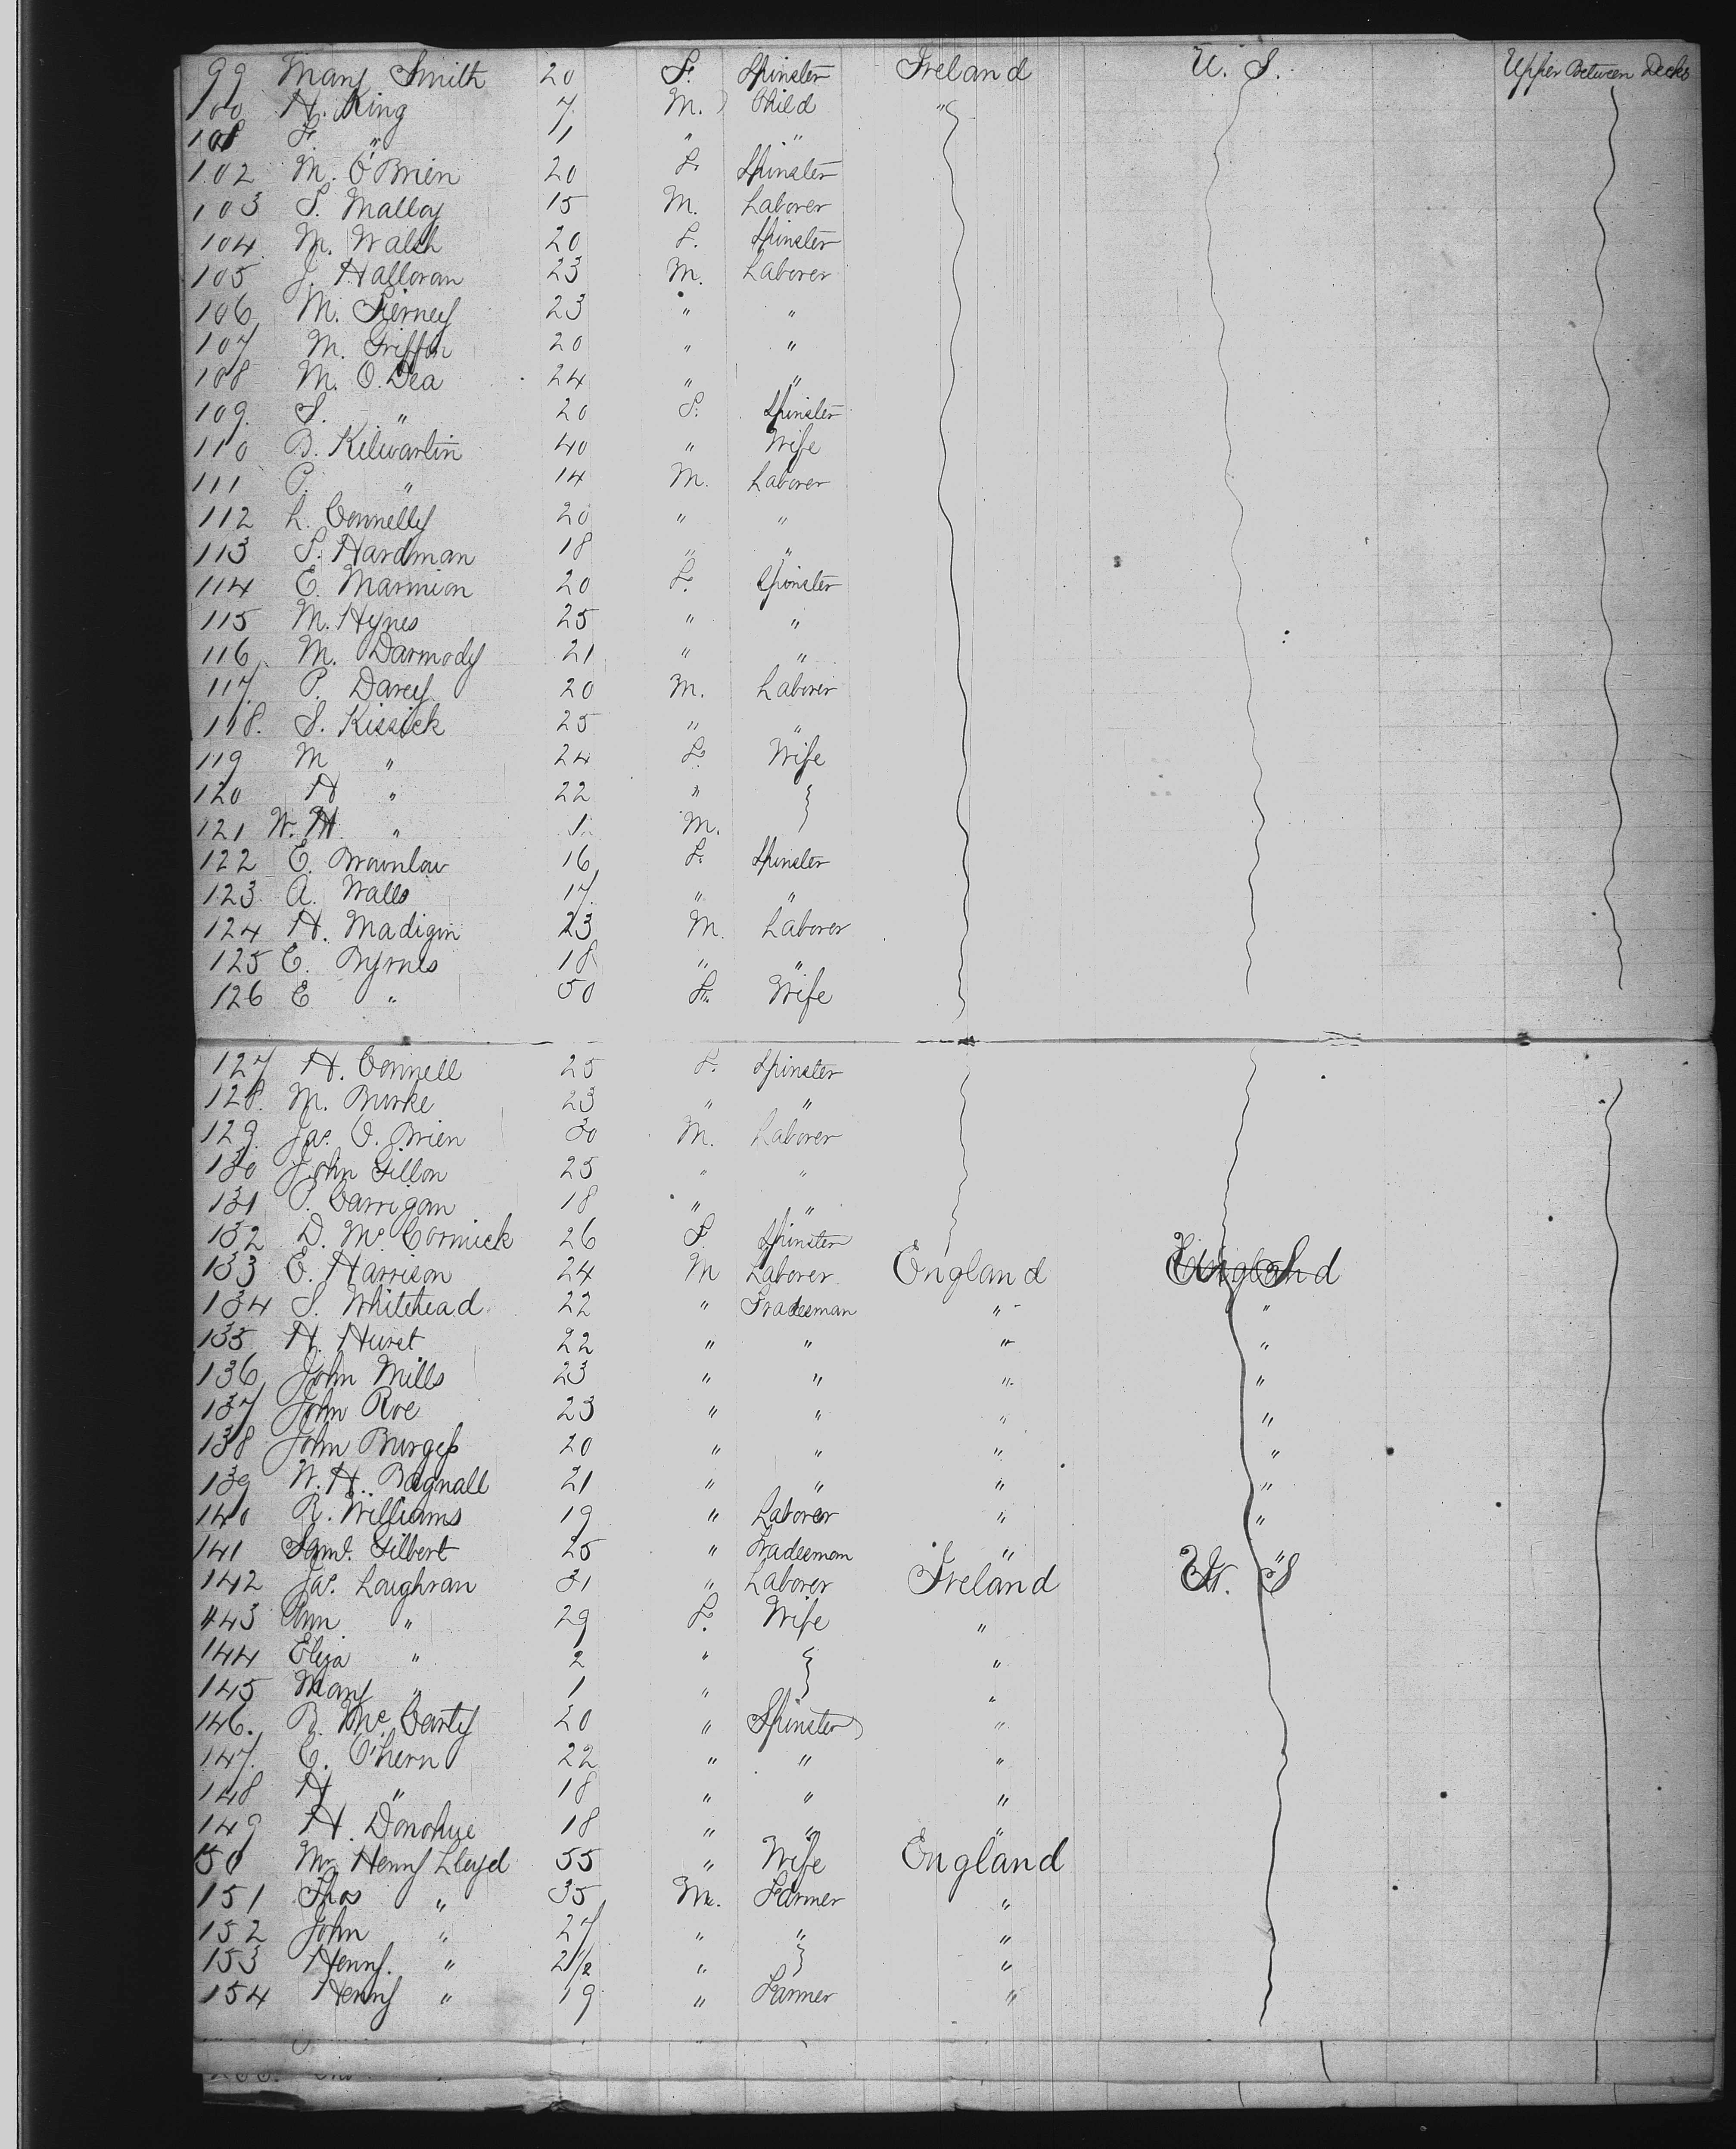 99 Mary Smith 20 F. Spinster Ireland U. S. Upper Between Decks
100 H. King 7 M. Child "
101 F. " 1 " "
102 M. O'Brien 20 F. Spinster
103 S. Malloy 15 M. Laborer
104 M. Walsh 20 F. Spinster
105 J. Halloran 23 M. Laborer
106 M. Tierney 23 " "
107 M. Griffin 20 " "
108 M. O.Dea 24 " "
109. S. " 20 F. Spinster
110 B. Kilwartin 40 " Wife
111 P. " 14 M. Laborer
112 L. Connelly 20 " "
113 S. Hardman 18 " "
114 E. Marmion 20 F. Spinster
115 M. Hynes 25 " "
116 M. Darmody 21 " "
117 P. Darcy 20 M. Laborer
118. S. Kissick 25 " "
119 M " 24 F. Wife
120 H " 22 "
121 W. H. " 1 M.
122 E. Brownlow 16 F. Spinster
123 A. Walls 17 " "
124 H. Madigin 23 M. Laborer
125 E. Byrnes 18 " "
126 E " 50 F. Wife
127 H. Connell 25 F. Spinster
128. M. Burke 23 " "
129. Jas. O. Brien 30 M. Laborer
130 John Gillon 25 " "
131 P. Carrigan 18 " "
132 D. McCormick 26 F. Spinster
133 E. Harrison 24 M Laborer England
134 S. Whitehead 22 " Tradesman " "
135 H. Hurst 22 " " " "
136 John Mills 23 " " " "
137 John Roe 23 " " " "
138 John Burgess 20 " " " "
139 W. H. Bagnall 21 " " " "
140 R. Williams 19 " Laborer " "
141 Saml. Gilbert 25 " Tradesman " "
142 Jas. Loughran 31 " Laborer Ireland U. S
143 Ann " 29 F. Wife "
144 Eliza " 2 " "
145 Mary " 1 " "
146. B. McCarty 20 " Spinster "
147. E. O'hern 22 " " "
148 H " 18 " " "
149 H. Donohue 18 " " "
150 Mr Henry Lloyd 55 " Wife England
151 Thos " 35 M. Farmer "
152 John " 27 " " "
153 Henry. " 2 1/2 " "
154 Henry " 19 " Farmer "